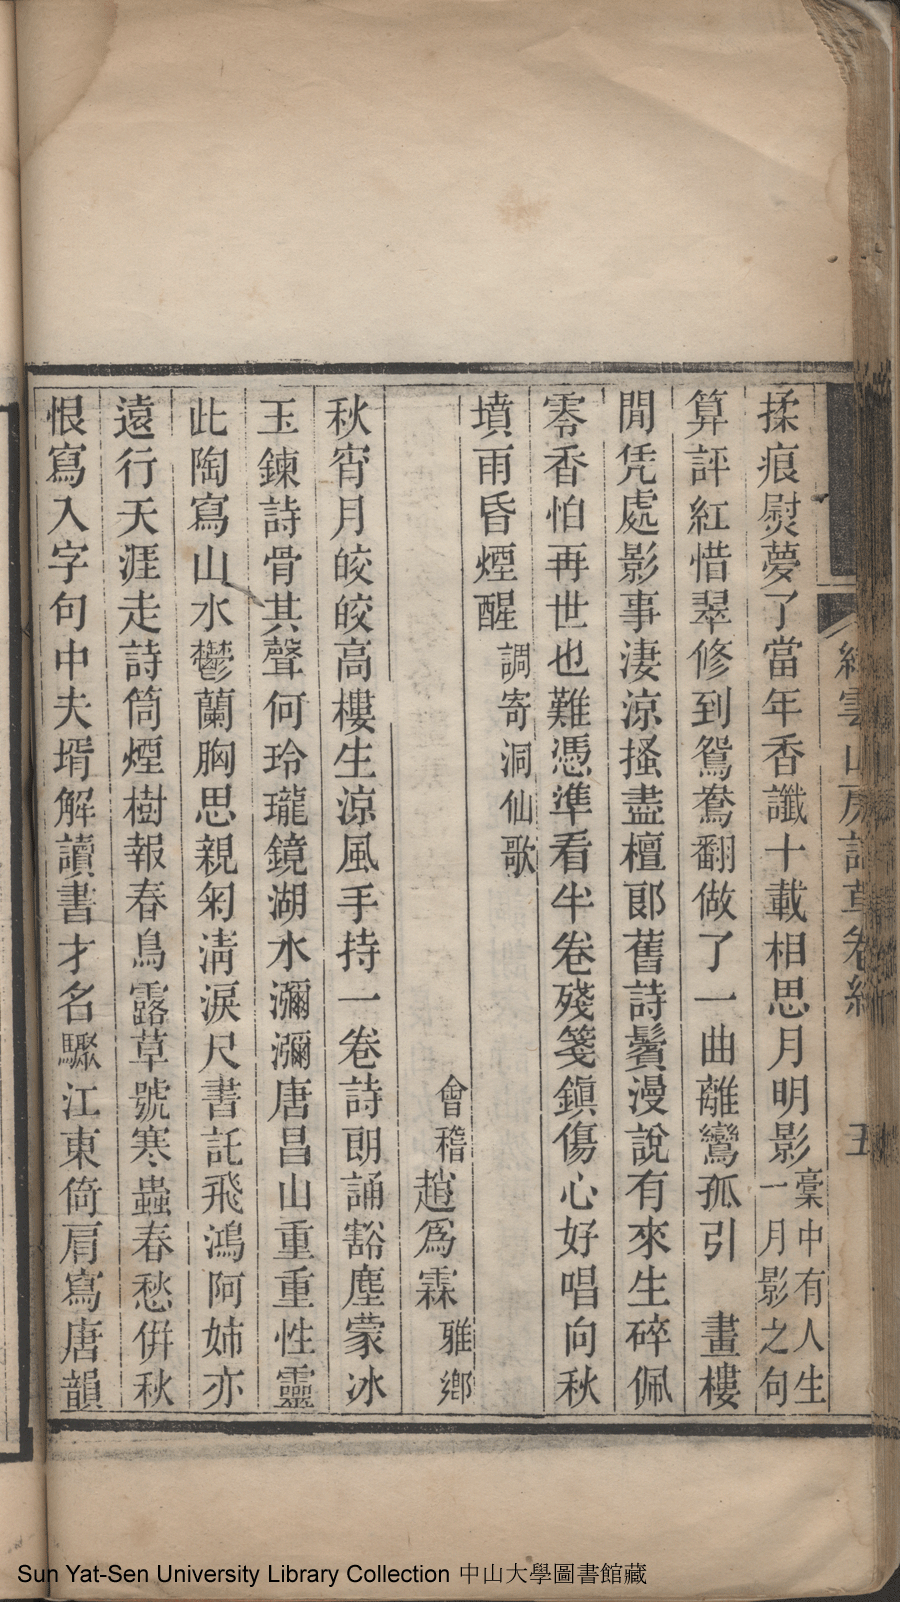 雲山房詩草卷 五
揉痕熨夢了當年香讖十載相思月明影
稾中有人生
一月影之句
算評紅惜翠修到鴛鴦翻做了一曲離鸞孤引 畫樓
閒凭處影事淒涼搔盡檀郎舊詩鬢漫說有來生碎佩
零香怕再世也難憑準看半卷殘箋鎭傷心好唱向秋
墳雨昏煙醒 調寄洞仙歌
會稽趙爲霖雅鄉
秋宵月皎皎高樓生涼風手持一卷詩朗誦豁塵蒙冰
玉鍊詩骨其聲何玲瓏鏡湖水瀰瀰唐昌山重重性靈
此陶寫山水鬱蘭胸思親匊淸淚尺書託飛鴻阿姊亦
遠行天涯走詩筒煙樹報春鳥露草號寒蟲春愁倂秋
恨寫入字句中夫壻解讀書才名驟江東倚肩寫唐韻
Sun Yat-Sen University Library Collection 中山大學圖書館藏